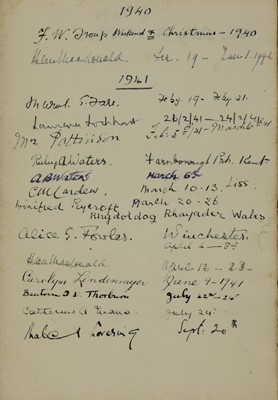 1940
F. W. Troup Weekend & Christmas - 1940
Helen Macdonald. Dec. 19 - Jan 1. 1941
1941
Feby. 19 - Feby 21.
Lawrence Lockhart 26/2/41 -
Mrs Pattinson Feb. 5
Ruby A Waters. Farnborough Park. Kent
A B Waters March 6th
C M Cardew. March 10-13. Liss.
Winifred Ryecroft March 20-26
Rhydoldog Rhayader Wales.
Alice G. Fowles. Winchester.
April 2 - 3rd
Helen Macdonald April 12 - 23
Carolyn Lindenmeyr June 9 - 1941
Thorburn July 22nd - 24
Catherine A July 24
Mabel Lovering Sept. 20th